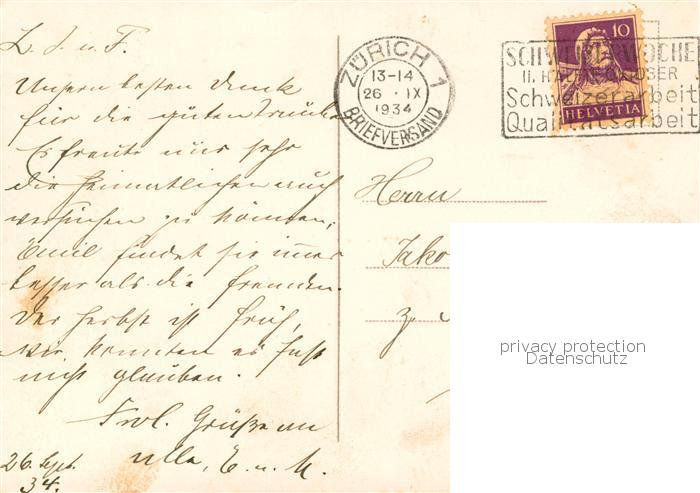 L. J. u. F.
Unsern besten Dank
für die guten Trauben
Es freute uns sehr
die heimatlichen auch
versuchen zu können,
Emil findet sie immer
besser als die fremden.
Der Herbst ist früh,
wir konnten es fast
nicht glauben.
Frdl. Grüße an
alle, E. u. M.
26. Sept.
34.
ZÜRICH 1
13-14
26 · IX
1934
BRIEFVERSAND
SCHWEIZERWOCHE
Schweizerarbeit
Qualitätsarbeit
10
HELVETIA
Herrn
Jako
privacy protection
Datenschutz